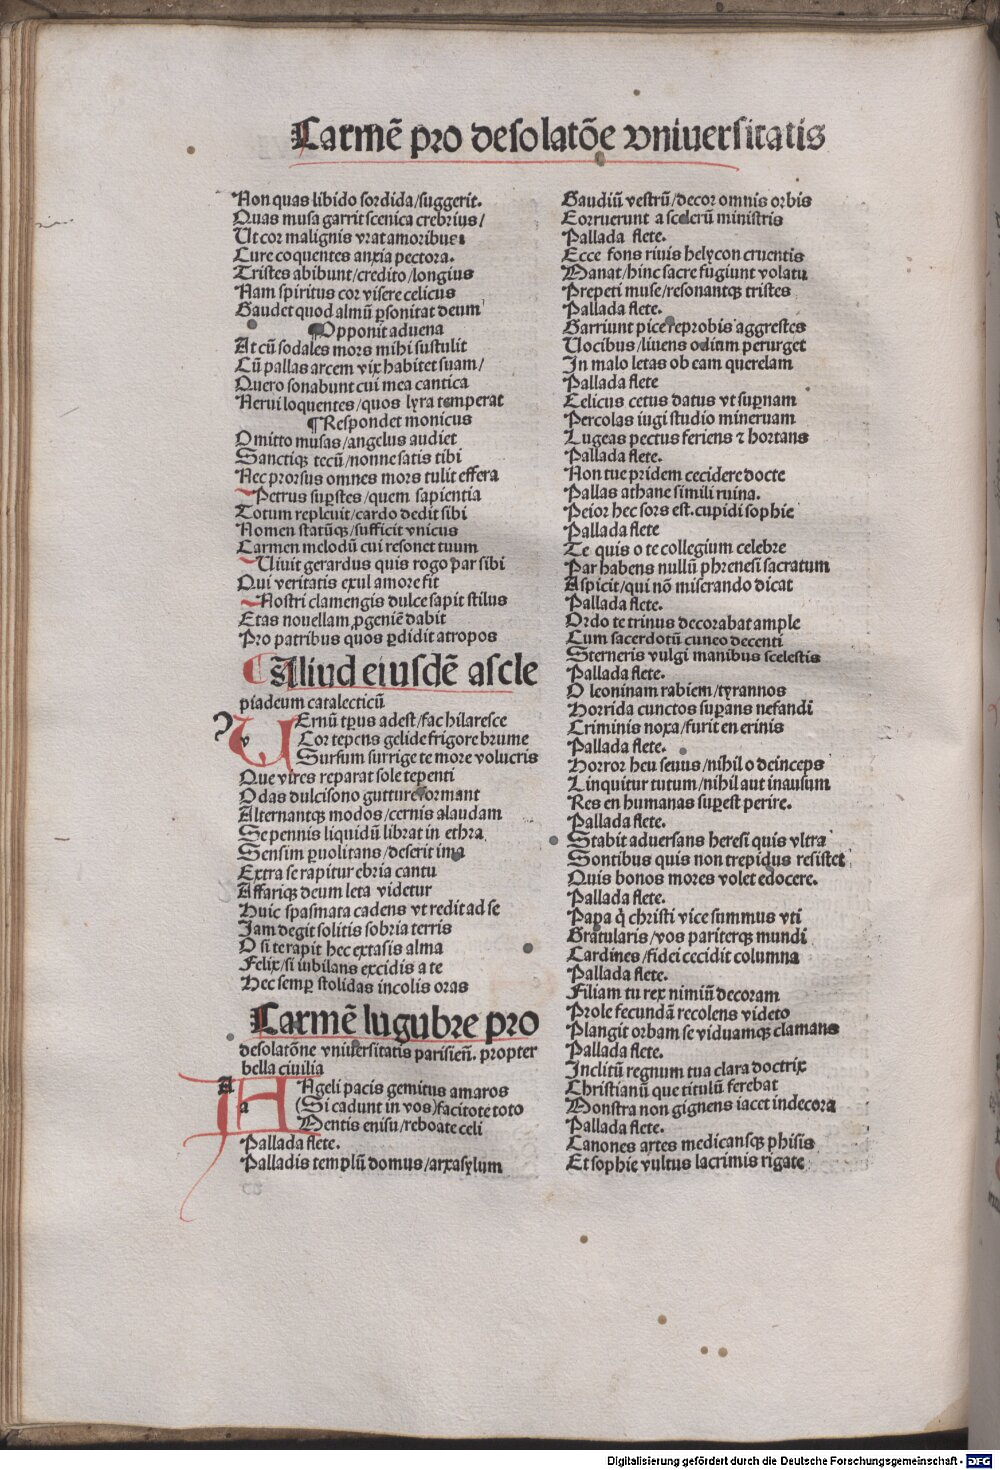 Carmē pro desolatōe vniuersitatis
Non quas libido sordida/suggerit.
Quas musa garrit scenica crebrius/
Ut cor malignis vrat amoribus
Cure coquentes anxia pectora.
Tristes abibunt/credito/longius
Nam spiritus cor visere celicus
Gaudet quod almū ꝑsonitat deum
¶Opponit aduena
At cū sodales mors mihi sustulit
Cū pallas arcem vix habitet suam/
Quero sonabunt cui mea cantica
Nerui loquentes/quos lyra temperat
¶Respondet monicus
Omitto musas/angelus audiet
Sanctiqꝫ tecū/nonne satis tibi
Nec prorsus omnes mors tulit effera
Petrus suꝑstes/quem sapientia
Totum repleuit/cardo dedit sibi
Nomen statūqꝫ/sufficit vnicus
Carmen melodū cui resonet tuum
Uiuit gerardus quis rogo par sibi
Qui veritatis exul amore fit
Nostri clamengis dulce sapit stilus
Etas nouellam ꝓgeniē dabit
Pro patribus quos ꝑdidit atropos
Aliud eiusdē ascle
piadeum catalecticū
UErnū tꝑus adest/fac hilaresce
Cor tepens gelide frigore brume
Sursum surrige te more volucris
Que vires reparat sole tepenti
Odas dulcisono gutture formant
Alternantqꝫ modos/cernis alaudam
Se pennis liquidū librat in ethra
Sensim ꝑuolitans/deserit ima
Extra se rapitur ebria cantu
Affariqꝫ deum leta videtur
Huic spasmata cadens vt redit ad se
Jam degit solitis sobria terris
O si te rapit hec extasis alma
Felix/si iubilans excidis a te
Hec semꝑ stolidas incolis oras
Carmē lugubre pro
desolatōne vniuersitatis parisieñ. propter
bella ciuilia
ANgeli pacis gemitus amaros
(Si cadunt in vos)facitote toto
Mentis enisu/reboate celi
Pallada flete.
Palladis templū domus/arx asylum
Gaudiū vestrū/decor omnis orbis
Corruerunt a scelerū ministris
Pallada flete.
Ecce fons riuis helycon cruentis
Manat/hinc sacre fugiunt volatu
Prepeti muse/resonantqꝫ tristes
Pallada flete.
Garriunt pice reprobis aggrestes
Uocibus/liuens odium perurget
In malo letas ob eam querelam
Pallada flete
Celicus cetus datus vt suꝑnam
Percolas iugi studio mineruam
Lugeas pectus feriens ⁊ hortans
Pallada flete.
Non tue pridem cecidere docte
Pallas athane simili ruina.
Peior hec sors est.cupidi sophie
Pallada flete
Te quis o te collegium celebre
Par habens nullū phrenesi sacratum
Aspicit/qui nō miserando dicat
Pallada flete.
Ordo te trinus decorabat ample
Cum sacerdotū cuneo decenti
Sterneris vulgi manibus scelestis
Pallada flete.
O leoninam rabiem/tyrannos
Horrida cunctos suꝑans nefandi
Criminis noxa/furit en erinis
Pallada flete.
Horror heu seuus/nihil o deinceps
Linquitur tutum/nihil aut inausum
Res en humanas suꝑest perire.
Pallada flete.
Stabit aduersans heresi quis vltra
Sontibus quis non trepidus resistet
Quis bonos mores volet edocere.
Pallada flete.
Papa q̇ christi vice summus vti
Gratularis/vos pariterqꝫ mundi
Cardines/fidei cecidit columna
Pallada flete.
Filiam tu rex nimiū decoram
Prole fecundā recolens videto
Plangit orbam se viduamqꝫ clamans
Pallada flete.
Inclitū regnum tua clara doctrix
Christianū que titulū ferebat
Monstra non gignens iacet indecora
Pallada flete.
Canones artes medicansqꝫ phisis
Et sophie vultus lacrimis rigate
Digitalisierung gefördert durch die Deutsche Forschungsgemeinschaft - DFG